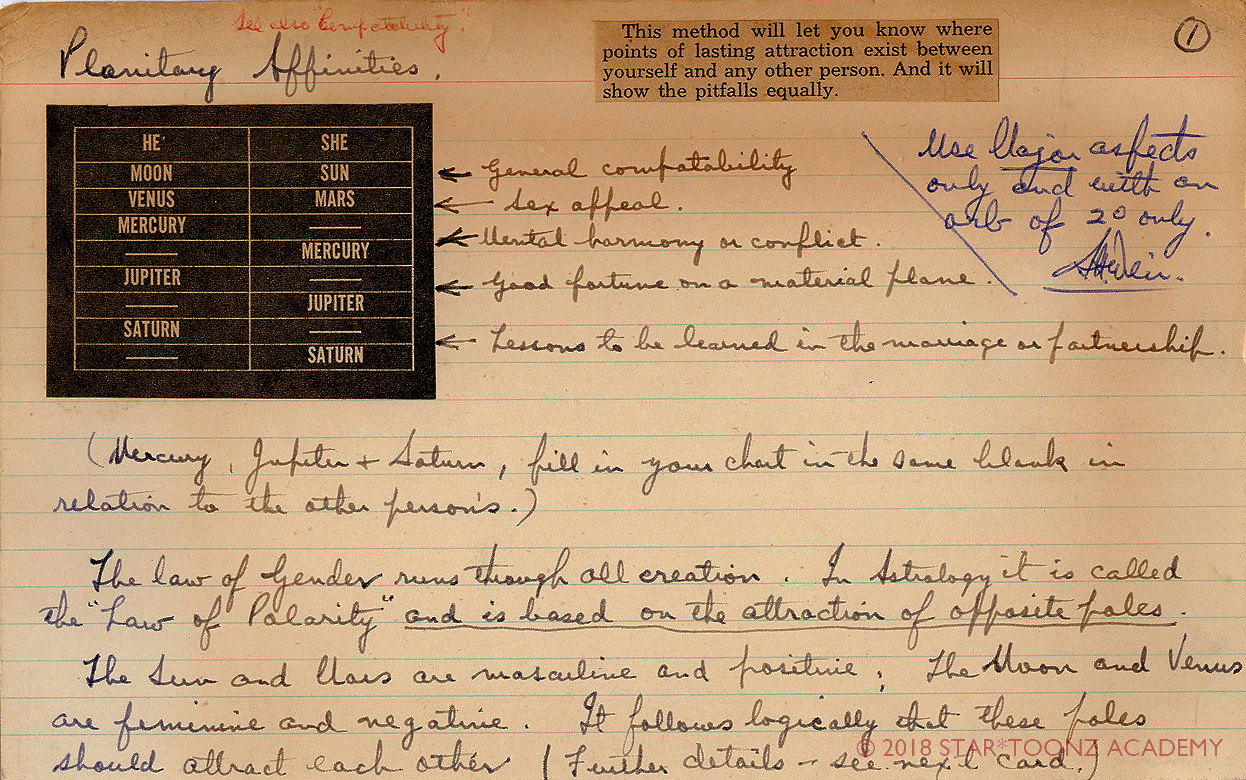 See also "Compatability".
Planitary Affinities.
This method will let you know where
points of lasting attraction exist between
yourself and any other person. And it will
show the pitfalls equally.
1
HE SHE
MOON SUN
VENUS MARS
MERCURY —
— MERCURY
JUPITER —
— JUPITER
SATURN —
— SATURN
General compatability
Sex appeal.
Mental harmony or conflict.
Good fortune on a material plane.
Lessons to be learned in the marriage or partnership.
Use Major aspects
only and with an
orb of 2° only.
(Mercury, Jupiter + Saturn, fill in your chart in the same blank in
relation to the other person's.)
The law of Gender runs through all creation. In Astrology it is called
the "Law of Polarity" and is based on the attraction of opposite poles.
The Sun and Mars are masculine and positive; The Moon and Venus
are feminine and negative. It follows logically that these poles
should attract each other (Further details - see next card.)
© 2018 STAR*TOONZ ACADEMY